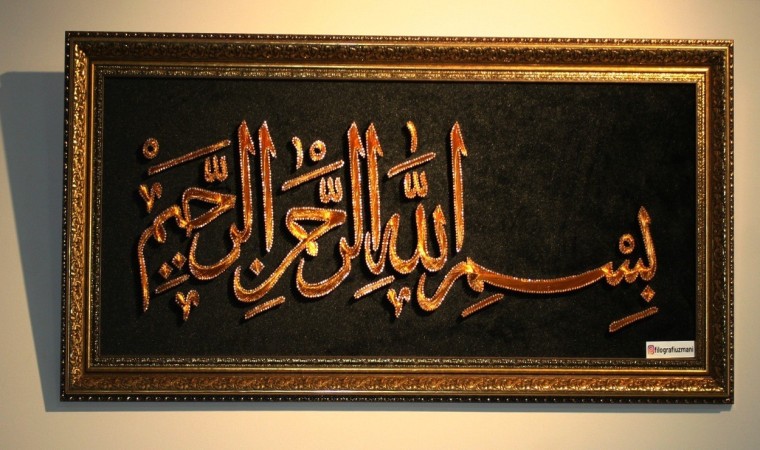 بِسْمِ اللَّهِ الرَّحْمٰنِ الرَّحِيمِ
filografiuzmani